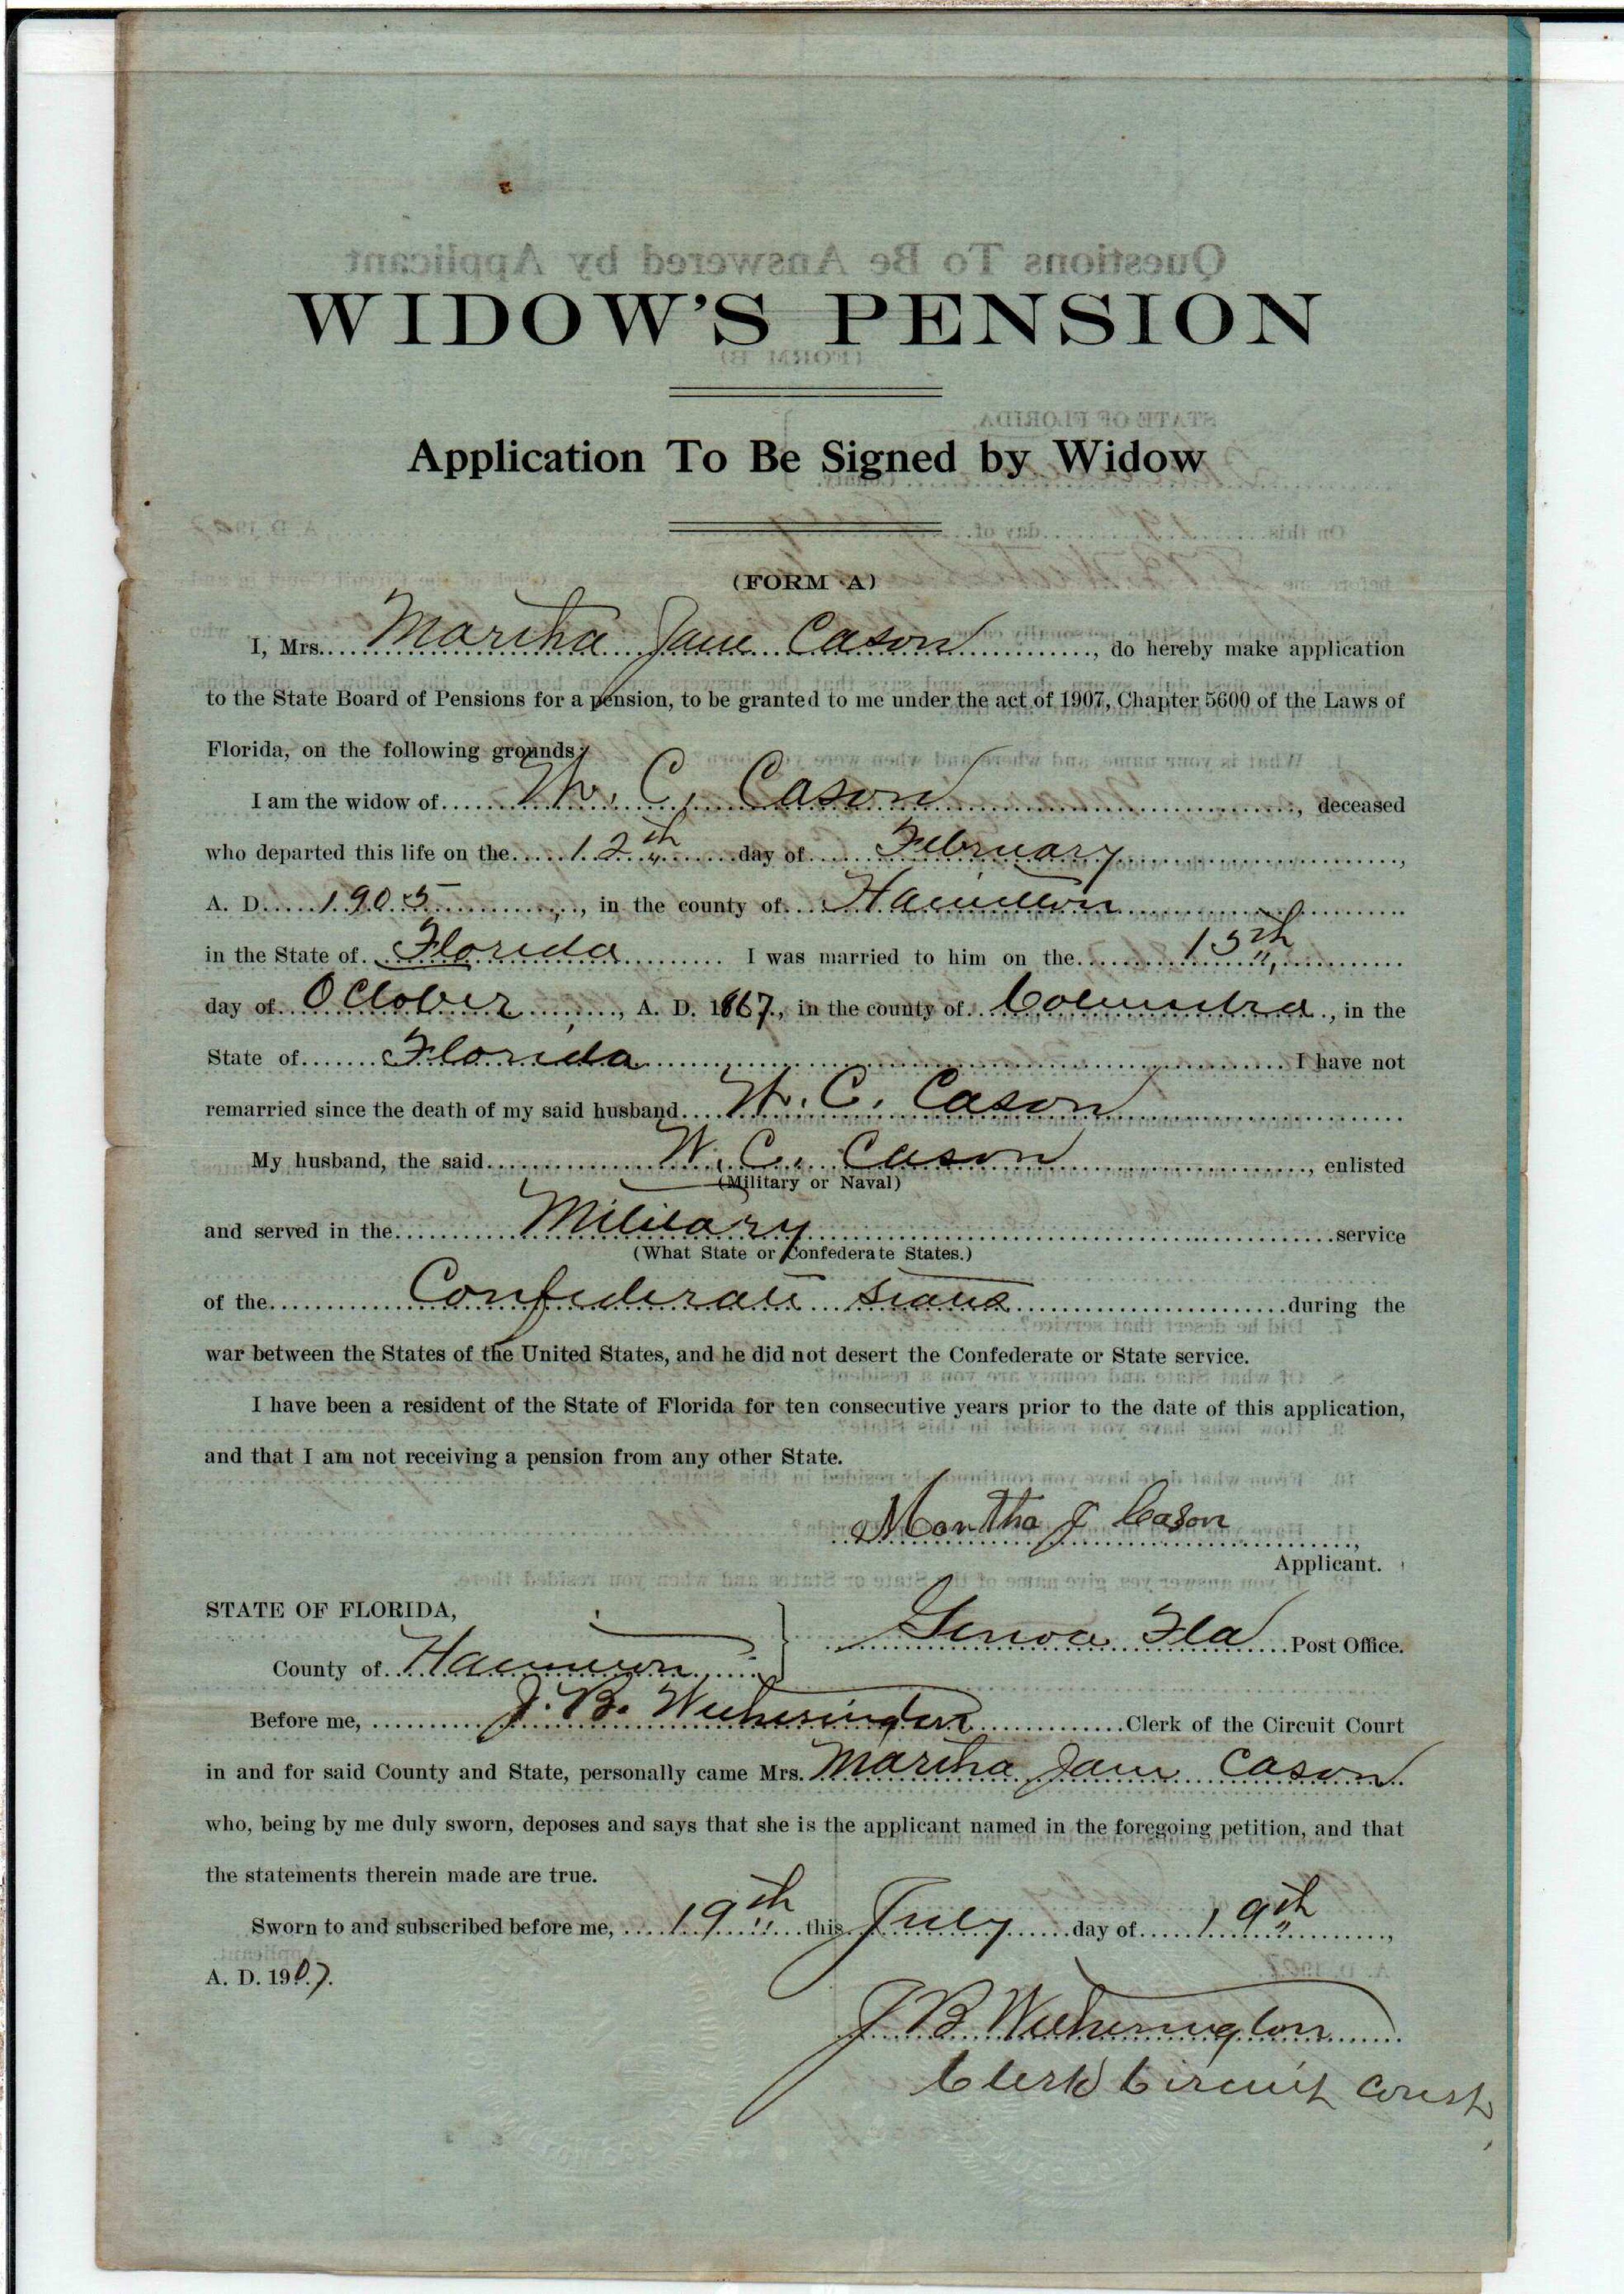 WIDOW'S PENSION
Application To Be Signed by Widow
(FORM A)
I, Mrs. Martha Jane Cason, do hereby make application
to the State Board of Pensions for a pension, to be granted to me under the act of 1907, Chapter 5600 of the Laws of
Florida, on the following grounds:
I am the widow of W. C. Cason, deceased
who departed this life on the 12th day of February,
A. D. 1905, in the county of Hamilton
in the State of Florida I was married to him on the 15th
day of October, A. D. 1867, in the county of Columbia, in the
State of Florida I have not
remarried since the death of my said husband W. C. Cason
My husband, the said W. C. Cason, enlisted
(Military or Naval)
and served in the Military service
(What State or Confederate States.)
of the Confederate States during the
war between the States of the United States, and he did not desert the Confederate or State service.
I have been a resident of the State of Florida for ten consecutive years prior to the date of this application,
and that I am not receiving a pension from any other State.
Martha J Cason
Applicant.
STATE OF FLORIDA,
Genoa Fla Post Office.
County of Hamilton
Before me, J. B. Witherington Clerk of the Circuit Court
in and for said County and State, personally came Mrs. Martha Jane Cason
who, being by me duly sworn, deposes and says that she is the applicant named in the foregoing petition, and that
the statements therein made are true.
Sworn to and subscribed before me, 19th this July day of 19th,
A. D. 1907.
J B Witherington
Clerk Circuit Court